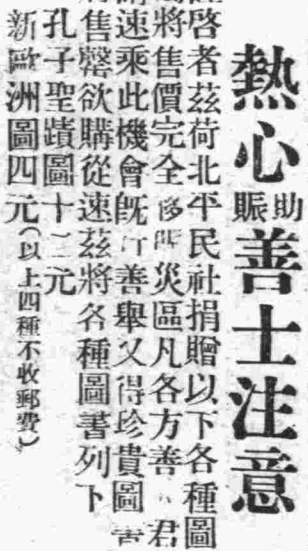 熱心助賑善士注意
啓者茲荷北平民社捐贈以下各種圖
將售價完全移助災區凡各方善君
速乘此機會旣行善舉又得珍貴圖
售罄欲購從速茲將各種圖書列下
孔子聖蹟圖十二元
新歐洲圖四元(以上四種不收郵費)